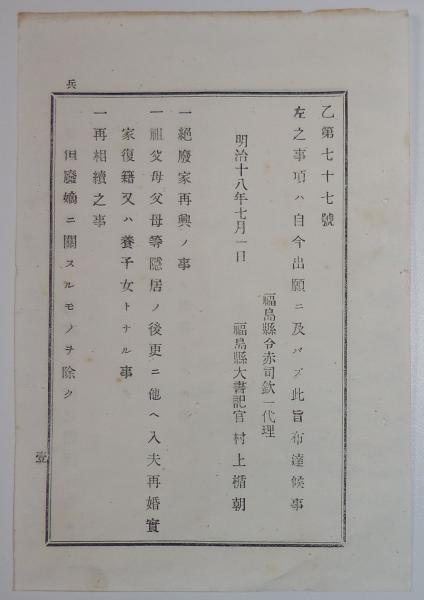 乙第七十七號
左之事項ハ自今出願ニ及バズ此旨布達候事
福島縣令赤司欽一代理
明治十八年七月一日　福島縣大書記官村上楯朝
一絶廢家再興ノ事
一祖父母父母等隱居ノ後更ニ他ヘ入夫再婚實
家復籍又ハ養子女トナル事
一再相續之事
但廢嫡ニ關スルモノヲ除ク
兵
壹